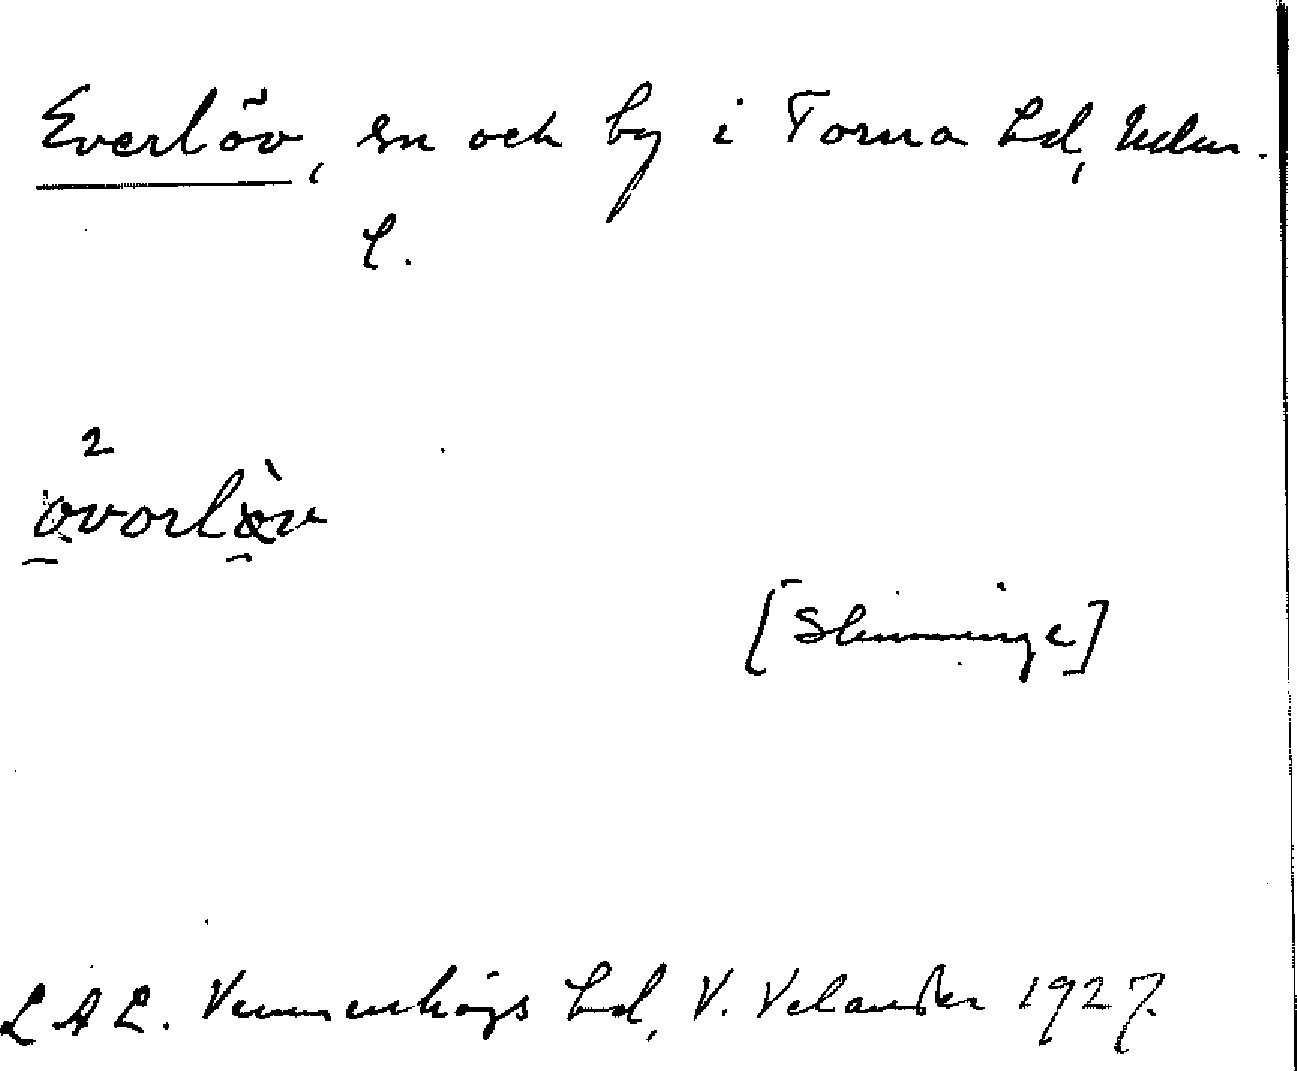 Everlöv, sn och by i Torna hd, Mlm.
l.
2
ovorlöv
[Slimminge]
LAL. Vemmenhögs hd, V. Velander 1927.